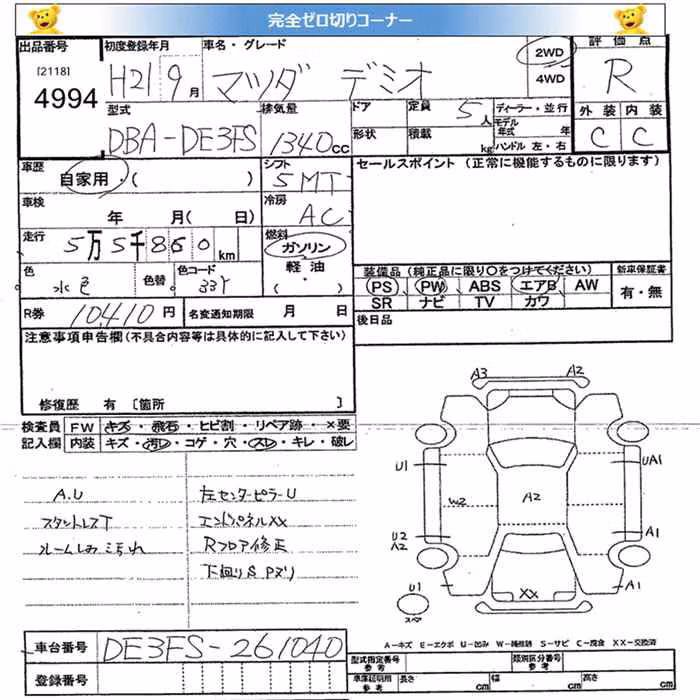 完全ゼロ切りコーナー
出品番号 初度登録年月 車名・グレード 2WD 評価点
[2118] H21 9月 マツダ デミオ 4WD R
4994
型式 排気量 ドア 定員 5人 ディーラー・並行 外装 内装
DBA-DE3FS 1340cc 形状 積載 kg モデル年式 年 C C
ハンドル 左・右
車歴 自家用・( ) シフト 5MT セールスポイント (正常に機能するものに限ります)
車検 年 月( 日) 冷房 AC
走行 5万5千860km 燃料 ガソリン
軽油
・( )
色 水色 色替 色コード 33Y
装備品 (純正品に限り○をつけてください) 新車保証書
PS PW ABS エアB AW 有・無
SR ナビ TV カワ
R券 10410円 名変通知期限 月 日
後日品
注意事項申告欄 (不具合内容等は具体的に記入して下さい)
修復歴 有 [箇所 ]
検査員 FW キズ・飛石・ヒビ割・リペア跡・×要
記入欄 内装 キズ・汚レ・コゲ・穴・スレ・キレ・破レ
A.U 左センターピラーU
スタントレスT エンドパネルXX
ルームしみ汚れ Rフロア修正
下廻りS Pヌリ
A3 A2
U1 UA1
W2 A2
U2 A1
A2
U1 XX A1
スペア
A-キズ E-エクボ U-凹み W-補修跡 S-サビ C-腐食 XX-交換済
車台番号 DE3FS-261040
登録番号
型式指定番号 参考 類別区分番号 参考
車庫証明用 参考 長さ cm 幅 cm 高さ cm